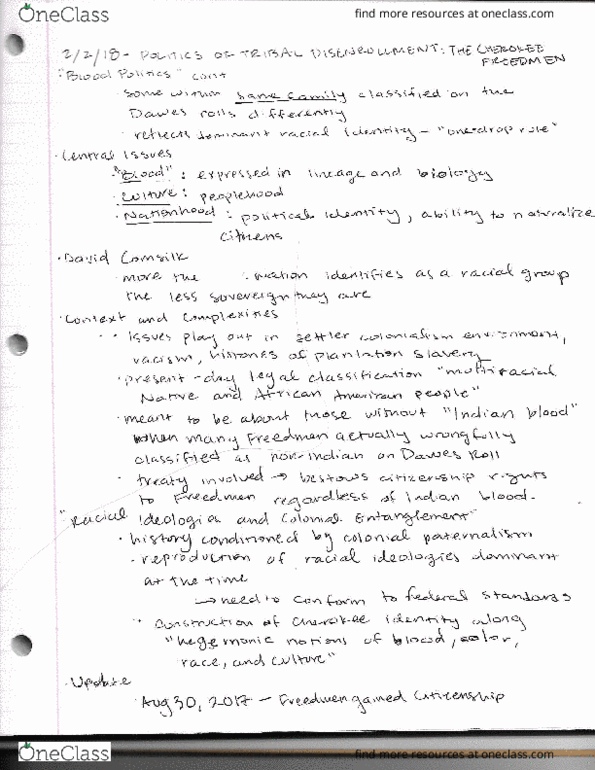 OneClass
find more resources at oneclass.com
2/2/18 - POLITICS OF TRIBAL DISENROLLMENT: THE CHEROKEE
FREEDMEN
"Blood Politics" cont
· some within same family classified on the
Dawes rolls differently
· reflects dominant racial identity - "one drop rule"
· Central Issues
· "Blood": expressed in lineage and biology
· Culture: peoplehood
· Nationhood: political identity, ability to naturalize
citizens
· David Cornsilk
· more the nation identifies as a racial group
the less sovereign they are
· Context and Complexities
· issues play out in settler colonialism environment,
racism, histories of plantation slavery
· present-day legal classification "multiracial
Native and African American people"
· meant to be about those without "Indian blood"
when many Freedmen actually wrongfully
classified as non-Indian on Dawes Roll
· treaty involved → bestows citizenship rights
to Freedmen regardless of Indian blood.
"Racial Ideologies and Colonial Entanglement"
· history conditioned by colonial paternalism
· reproduction of racial ideologies dominant
at the time
→ need to conform to federal standards
· construction of Cherokee identity along
"hegemonic notions of blood, color,
race, and culture"
· Update
· Aug 30, 2017 - Freedmen gained citizenship
OneClass
find more resources at oneclass.com